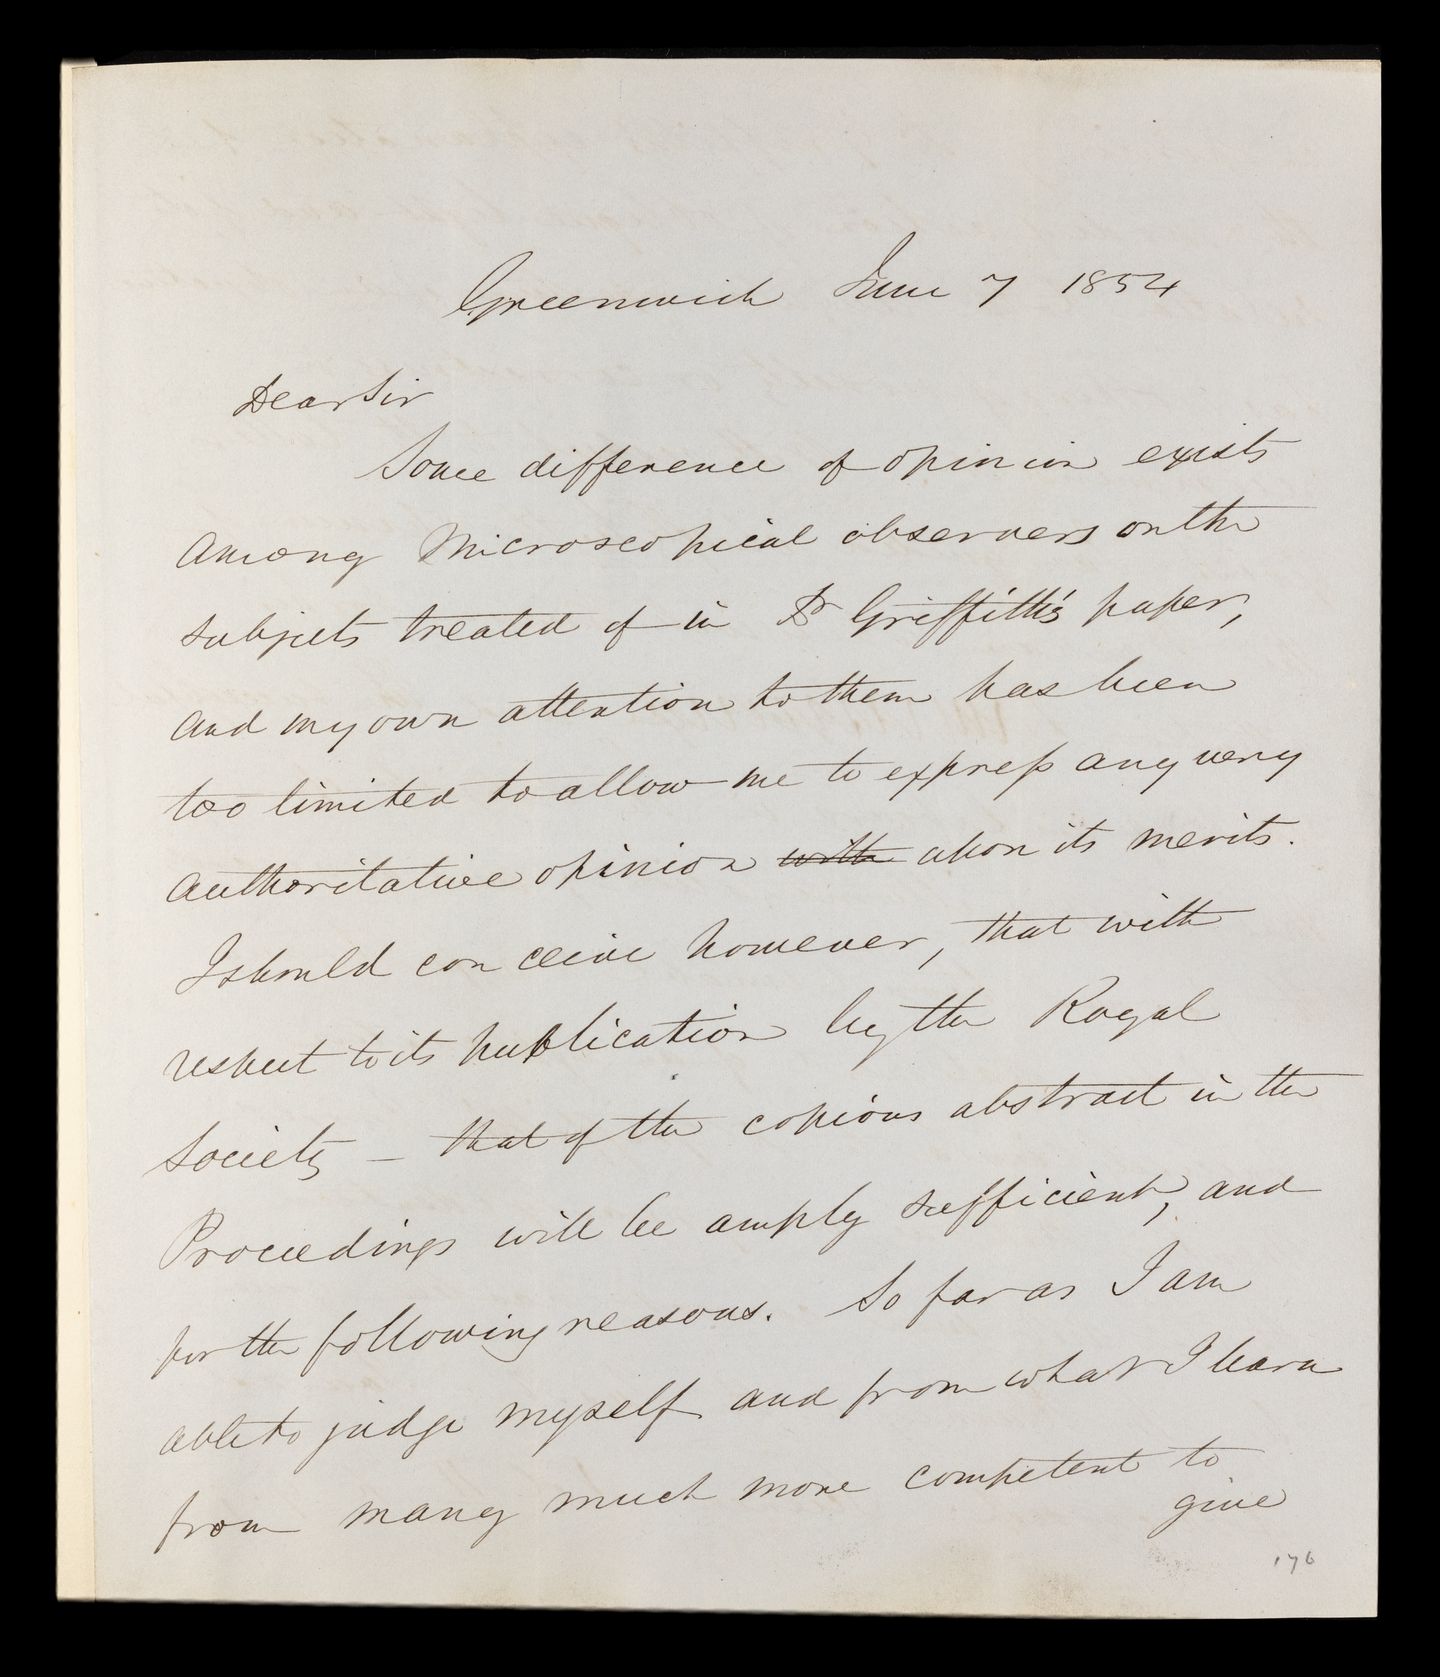 Greenwich June 7 1854
Dear Sir
Some difference of opinion exists
among Microscopical observers on the
subjects treated of in Dr Griffith's paper,
and my own attention to them has been
too limited to allow me to express any very
authoritative opinion with upon its merits.
I should conceive however, that with
respect to its publication by the Royal
Society – that of the copious abstract in the
Proceedings will be amply sufficient, and
for the following reasons. So far as I am
able to judge myself and from what I learn
from many much more competent to
give
176